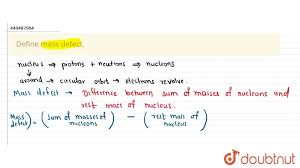 449497994
Define mass defect.
nucleus ⇒ protons + neutrons ⇒ nucleons
around → circular orbit → electrons revolve.
Mass defect → Difference between sum of masses of nucleons and
rest mass of nucleus.
(Mass defect) = (sum of masses of nucleons) − (rest mass of nucleus)
doubtnut